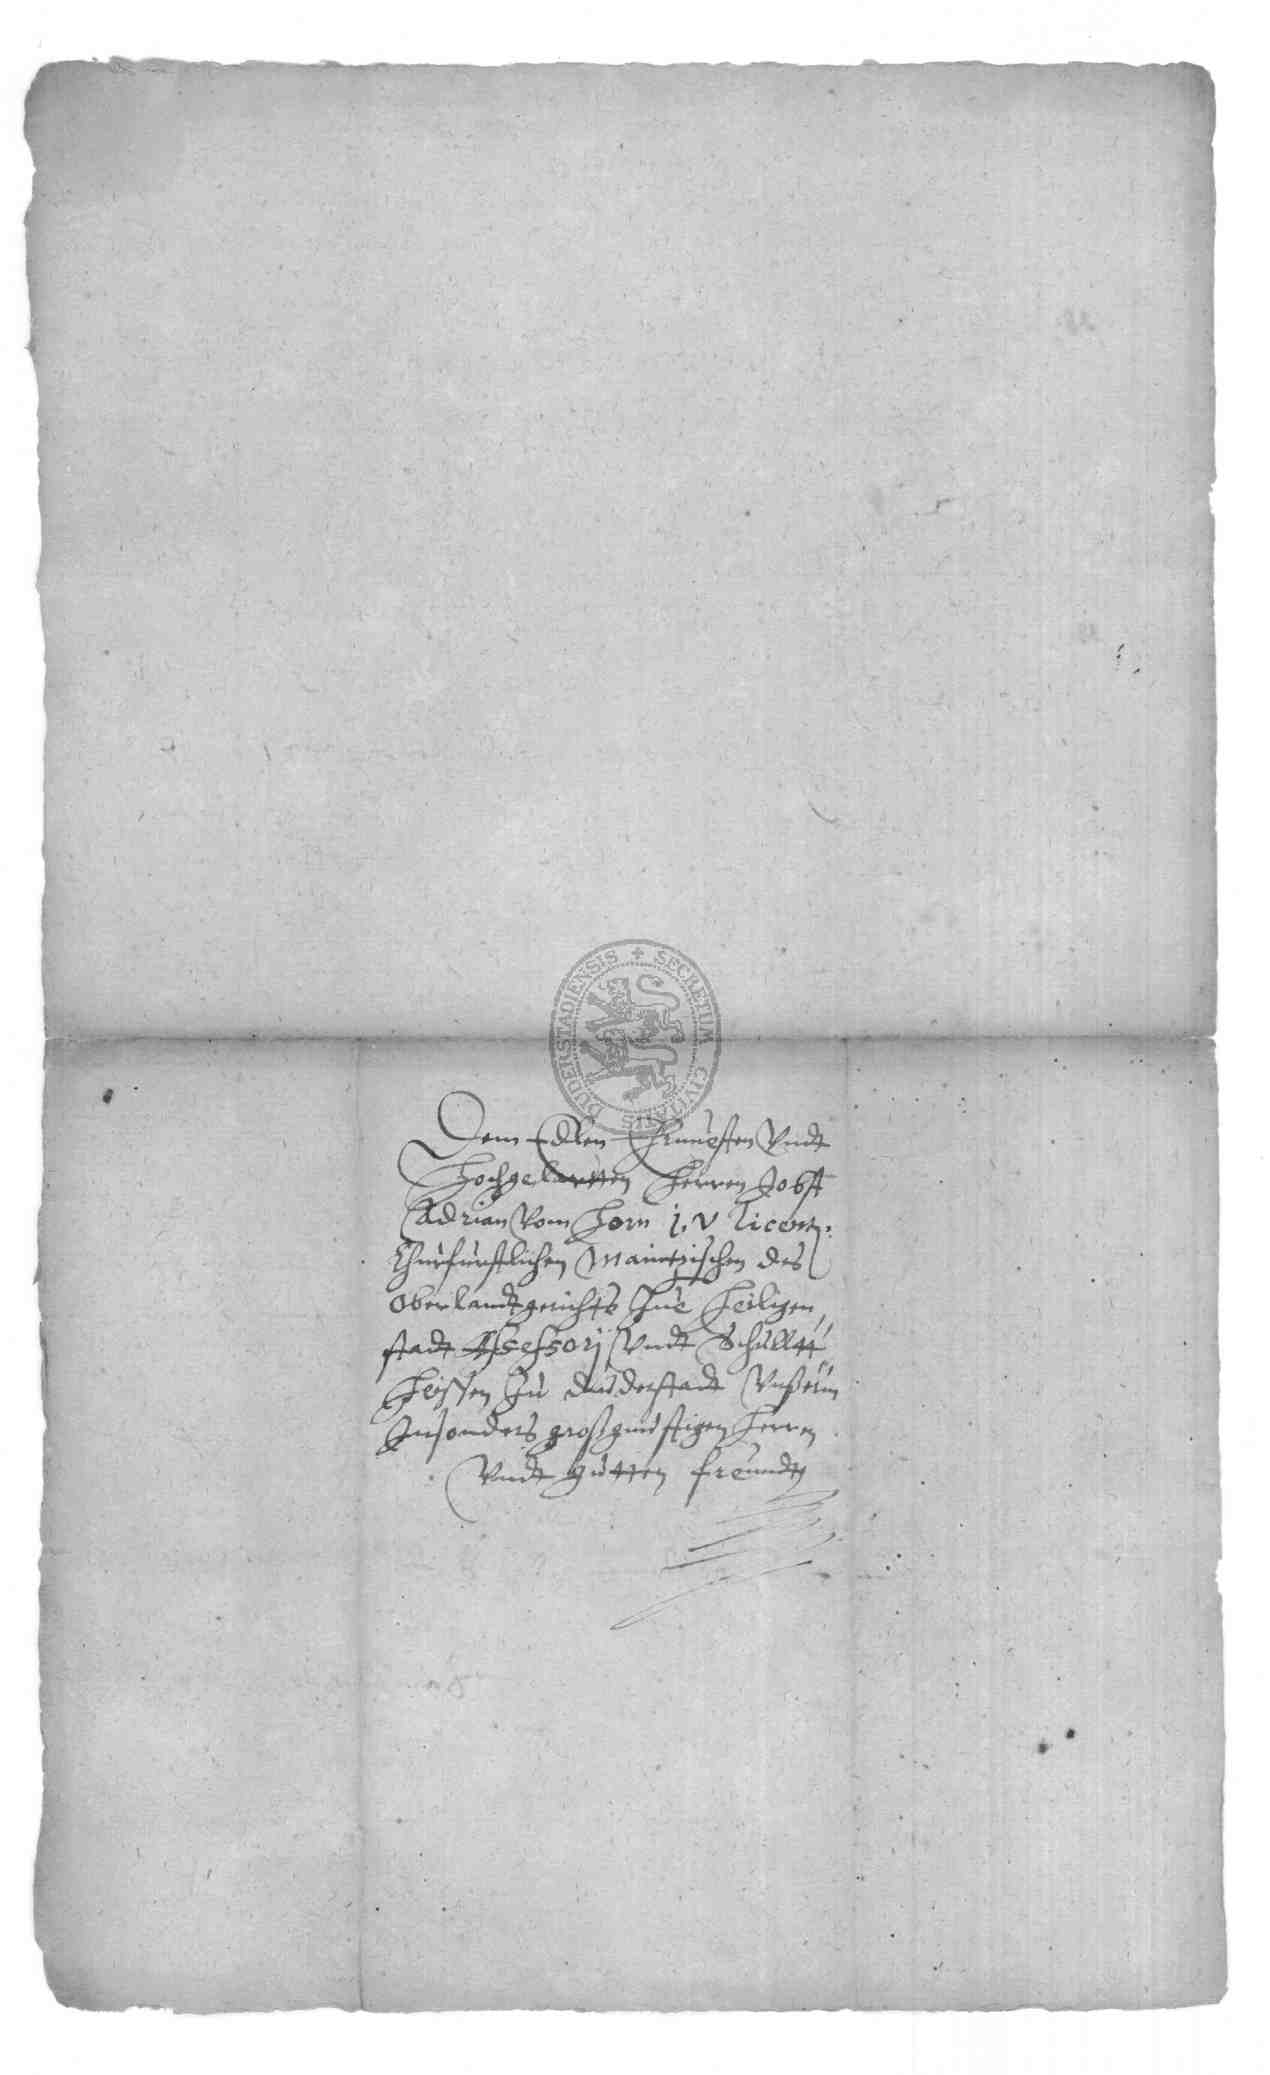 SECRETUM CIVITATIS DUDERSTADIENSIS
Dem Edlen Ehrnuesten Vndt
Hochgelartten Herren Jobst
Adrian Vom Horn J. V Licent:
Churfurstlichen Maintzischen des
Oberlandtgerichts Zue Heiligen
stadt Assessorj Vndt Schulltt
heissen Zu duderstadt Vnßerm
Insonders großgunstigen Herren
Vndt gutten freundt